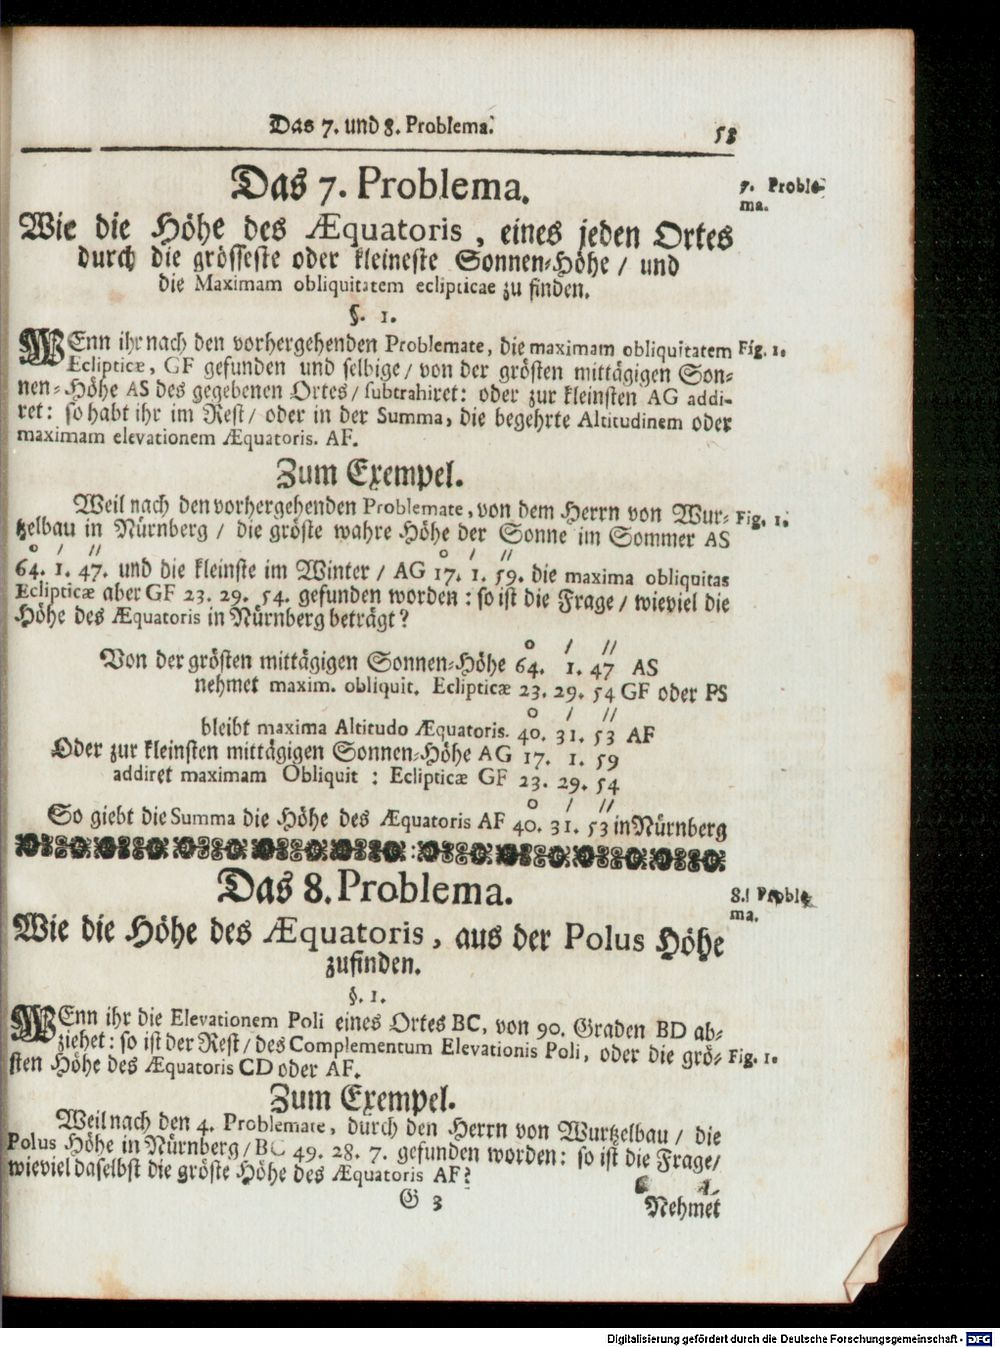 Das 7. und 8. Problema.
53
Das 7. Problema.
7. Proble-
ma.
Wie die Höhe des Æquatoris, eines jeden Ortes
durch die grösseste oder kleineste Sonnen-Höhe / und
die Maximam obliquitatem eclipticae zu finden.
§. 1.
WEnn ihr nach den vorhergehenden Problemate, die maximam obliquitatem
Fig. 1.
Eclipticæ, GF gefunden und selbige / von der grösten mittägigen Son-
nen-Höhe AS des gegebenen Ortes / subtrahiret: oder zur kleinsten AG addi-
ret: so habt ihr im Rest / oder in der Summa, die begehrte Altitudinem oder
maximam elevationem Æquatoris. AF.
Zum Exempel.
Weil nach den vorhergehenden Problemate, von dem Herrn von Wur-
Fig. 1.
tzelbau in Nürnberg / die gröste wahre Höhe der Sonne im Sommer AS
o / // o / //
64. 1. 47. und die kleinste im Winter / AG 17. 1. 59. die maxima obliquitas
Eclipticæ aber GF 23. 29. 54. gefunden worden: so ist die Frage / wieviel die
Höhe des Æquatoris in Nürnberg beträgt?
o / //
Von der grösten mittägigen Sonnen-Höhe 64. 1. 47 AS
nehmet maxim. obliquit. Eclipticæ 23. 29. 54 GF oder PS
o / //
bleibt maxima Altitudo Æquatoris. 40. 31. 53 AF
Oder zur kleinsten mittägigen Sonnen-Höhe AG 17. 1. 59
addiret maximam Obliquit : Eclipticæ GF 23. 29. 54
o / //
So giebt die Summa die Höhe des Æquatoris AF 40. 31. 53 in Nürnberg
Das 8. Problema.
8. Proble
ma.
Wie die Höhe des Æquatoris, aus der Polus Höhe
zufinden.
§. 1.
WEnn ihr die Elevationem Poli eines Ortes BC, von 90. Graden BD ab-
ziehet: so ist der Rest / des Complementum Elevationis Poli, oder die grö-
Fig. 1.
sten Höhe des Æquatoris CD oder AF.
Zum Exempel.
Weil nach den 4. Problemate, durch den Herrn von Wurtzelbau / die
Polus Höhe in Nürnberg / BC 49. 28. 7. gefunden worden: so ist die Frage /
wieviel daselbst die gröste Höhe des Æquatoris AF?
G 3
Nehmet
Digitalisierung gefördert durch die Deutsche Forschungsgemeinschaft - DFG